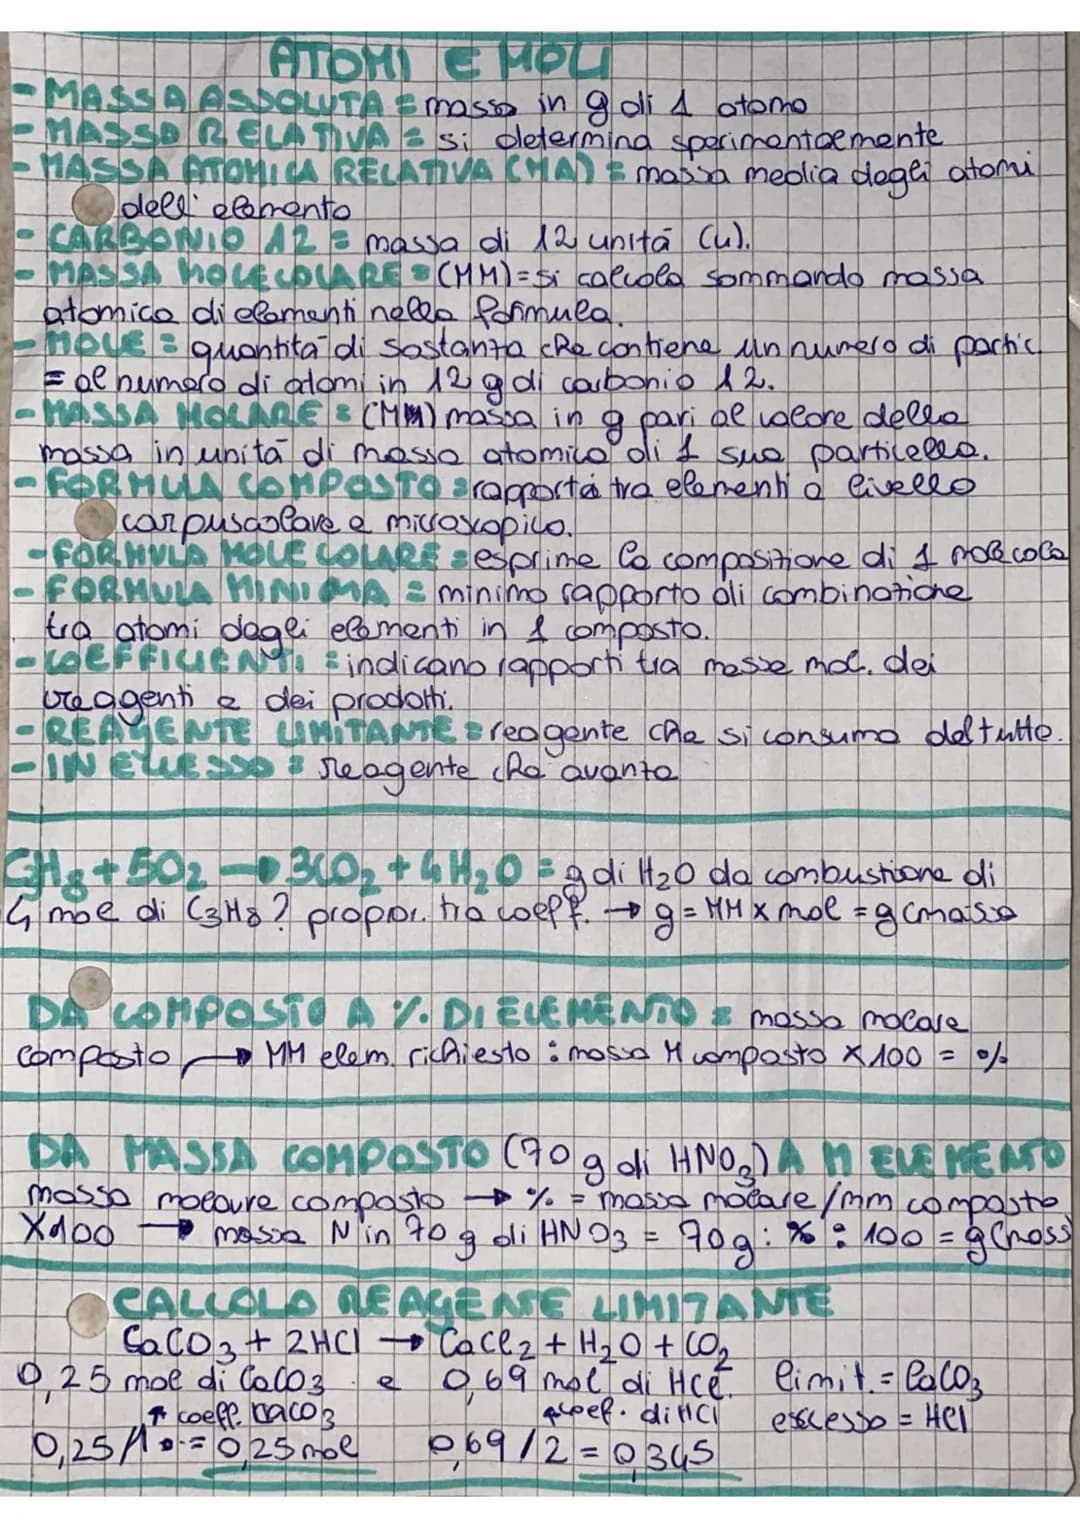 ATOMI E MOLI
- MASSA ASSOLUTA = massa in g di 1 atomo
- MASSA RELATIVA = si determina sperimentalmente
- MASSA ATOMICA RELATIVA (MA) = massa media degli atomi
dell'elemento
- CARBONIO 12 = massa di 12 unità (u).
- MASSA MOLECOLARE = (MM) = si calcola sommando massa
atomica di elementi nella formula.
- MOLE = quantità di sostanza che contiene un numero di partic.
= al numero di atomi in 12 g di carbonio 12.
- MASSA MOLARE = (MM) massa in g pari al valore della
massa in unità di massa atomica di 1 sua particella.
- FORMULA COMPOSTO = rapporto tra elementi a livello
corpuscolare e microscopico.
- FORMULA MOLECOLARE = esprime la composizione di 1 molecola
- FORMULA MINIMA = minimo rapporto di combinazione
tra atomi degli elementi in 1 composto.
- COEFFICIENTI = indicano rapporti tra masse mol. dei
reagenti e dei prodotti.
- REAGENTE LIMITANTE = reagente che si consuma del tutto.
- IN ECCESSO = reagente che avanza
C3H8 + 5O2 → 3CO2 + 4H2O = g di H2O da combustione di
4 mol di C3H8? propor. tra coeff. → g = MM x mol = g (massa
DA COMPOSTO A % DI ELEMENTO = massa molare
composto → MM elem. richiesto : massa M composto X 100 = %
DA MASSA COMPOSTO (70 g di HNO3) A M ELEMENTO
massa molare composto → % = massa molare / mm composto
X100 → massa N in 70 g di HNO3 = 70g : % : 100 = g (mass
CALCOLO REAGENTE LIMITANTE
CaCO3 + 2HCl → CaCl2 + H2O + CO2
0,25 mol di CaCO3 e 0,69 mol di HCl. limit. = CaCO3
↑ coeff. CaCO3 ↑ coef. di HCl eccesso = HCl
0,25/1 = 0,25 mol 0,69/2 = 0,345